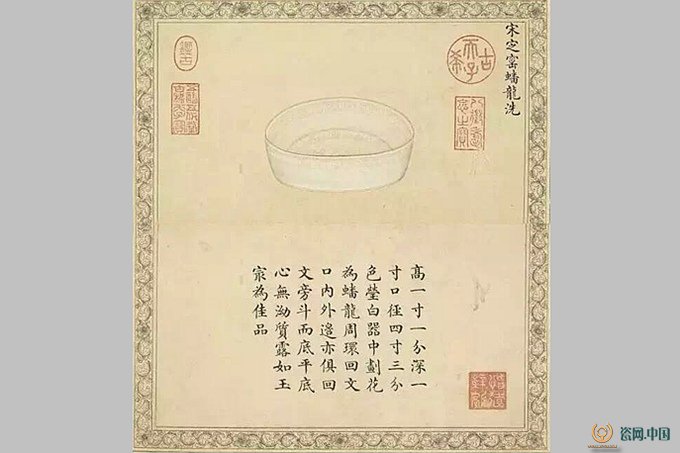 宋定窑蟠龍洗
古希天子
八徵耄念之寶
高一寸一分深一
寸口徑四寸三分
色瑩白器中劃花
為蟠龍周環回文
口內外邊亦俱回
文旁斗而底平底
心無泑質露如玉
㝡為佳品
瓷网.中国